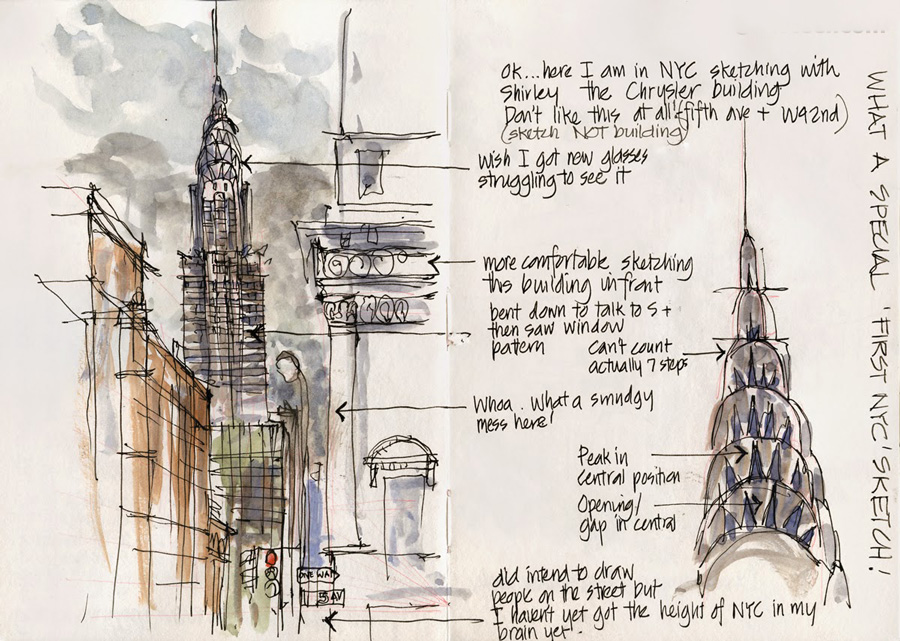 OK...here I am in NYC sketching with
Shirley the Chrysler building
Don't like this at all! (fifth ave + W42nd)
(sketch NOT building)
wish I got new glasses
struggling to see it
more comfortable sketching
this building infront
bent down to talk to S +
then saw window
pattern
can't count
actually 7 steps
Whoa. What a smudgy
mess here!
Peak in
central position
Opening/
gap in central
did intend to draw
people on the street but
I haven't yet got the height of NYC in my
brain yet.
ONE WAY
5 AV
WHAT A SPECIAL 'FIRST NYC' SKETCH!